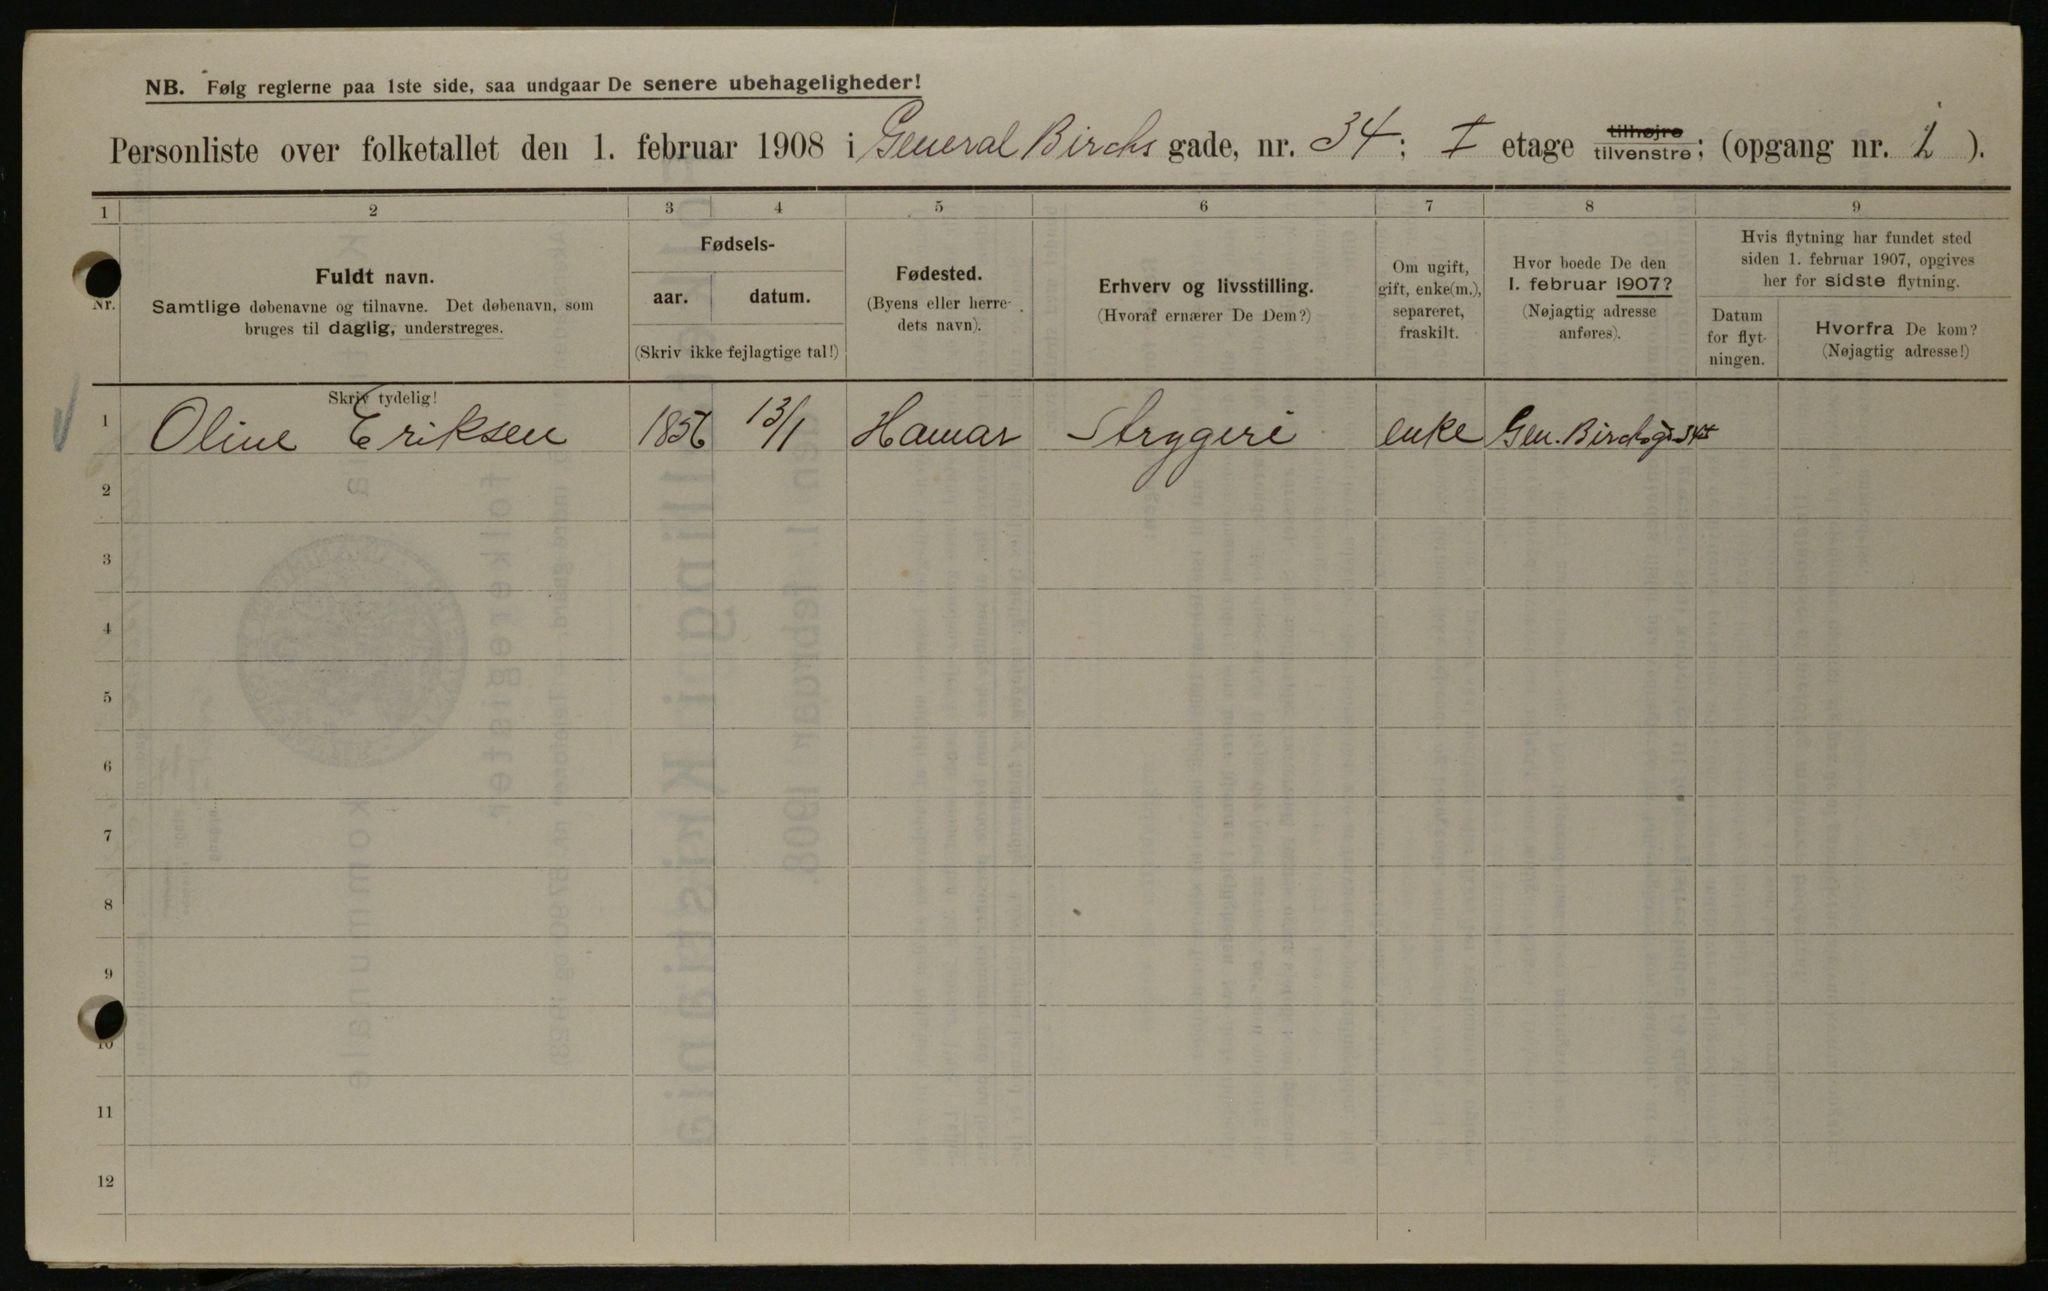 NB. Følg reglerne paa 1ste side, saa undgaar De senere ubehageligheder!
Personliste over folketallet den 1. februar 1908 i General Birchs gade, nr. 34; I etage tilhøjre tilvenstre; (opgang nr. 1).
1 2 3 4 5 6 7 8 9
Nr.
Fuldt navn.
Samtlige døbenavne og tilnavne. Det døbenavn, som
bruges til daglig, understreges.
Fødsels-
aar. datum.
(Skriv ikke fejlagtige tal!)
Fødested.
(Byens eller herre-
dets navn).
Erhverv og livsstilling.
(Hvoraf ernærer De Dem?)
Om ugift,
gift, enke(m.),
separeret,
fraskilt.
Hvor boede De den
1. februar 1907?
(Nøjagtig adresse
anføres).
Hvis flytning har fundet sted
siden 1. februar 1907, opgives
her for sidste flytning.
Datum
for flyt-
ningen.
Hvorfra De kom?
(Nøjagtig adresse!)
Skriv tydelig!
1 Oline Eriksen 1856 13/1 Hamar Strygeri enke Gen. Birchsg. 34 I
2
3
4
5
6
7
8
9
10
11
12